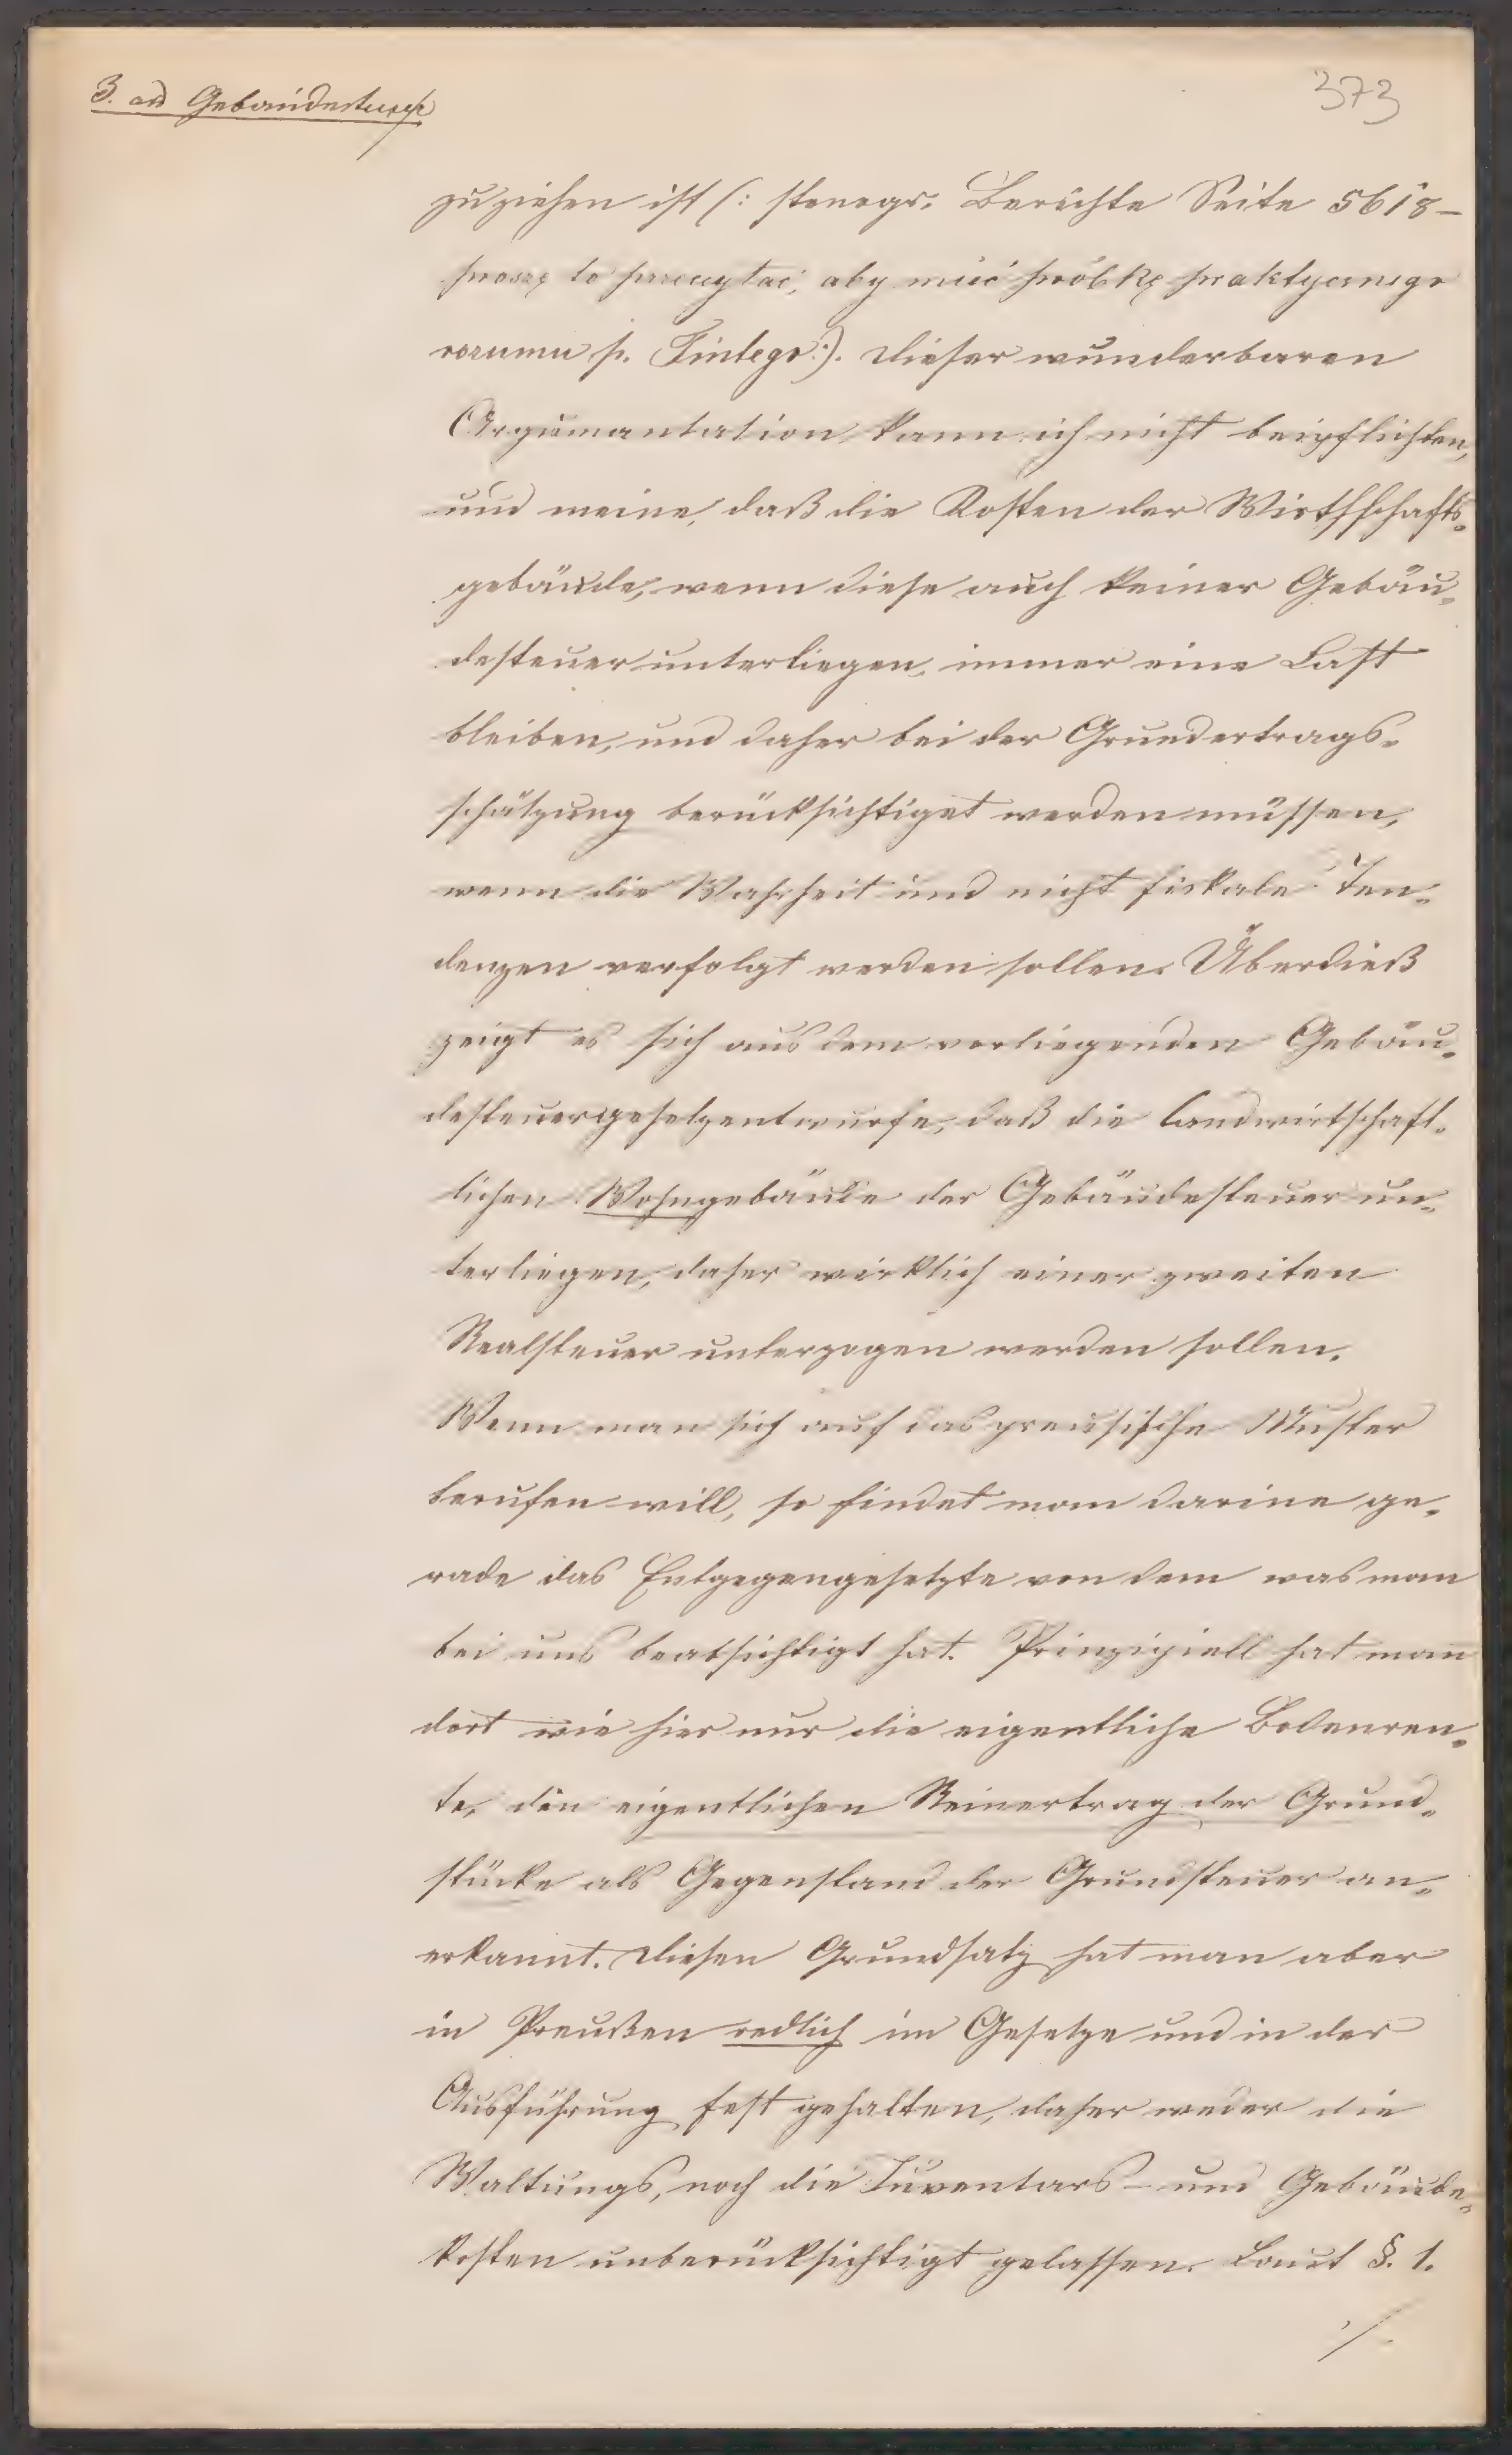 3. ad Gebäudesteuer
373
zuziehen ist (: stenogr. Berichte Seite 5618 –
proszę to przeczytać, aby mieć próbkę praktycznego
rozumu p. Tintego:). Dieser wunderbaren
Argumantation kann ich nicht beipflichten,
und meine, daß die Kosten der Wirthschafts-
gebäude, wenn diese auch keiner Gebäu-
desteuer unterliegen, immer eine Last
bleiben, und daher bei der Grundertrags-
schätzung berücksichtiget werden müssen,
wenn die Wahrheit und nicht fiskale Ten-
denzen verfolgt werden sollen. Überdieß
zeigt es sich aus dem vorliegenden Gebäu-
desteuergesetzentwurfe, daß die landwirtschaft-
lichen Wohngebäude der Gebäudesteuer un-
terliegen, daher wirklich einer zweiten
Realsteuer unterzogen werden sollen.
Wenn man sich auf das preusische Muster
berufen will, so findet man darine ge-
rade das Entgegengesetzte von dem was man
bei uns beabsichtigt hat. Prinzipiell hat man
dort wie hier nur die eigentliche Bodenren-
te, den eigentlichen Reinertrag der Grund-
stücke als Gegenstand der Grundsteuer an-
erkannt. Diesen Grundsatz hat man aber
in Preußen redlich im Gesetze und in der
Ausführung fest gehalten, daher weder die
Waltungs, noch die Inventars- und Gebäude-
kosten unberücksichtigt gelassen. Laut §. 1.
./.